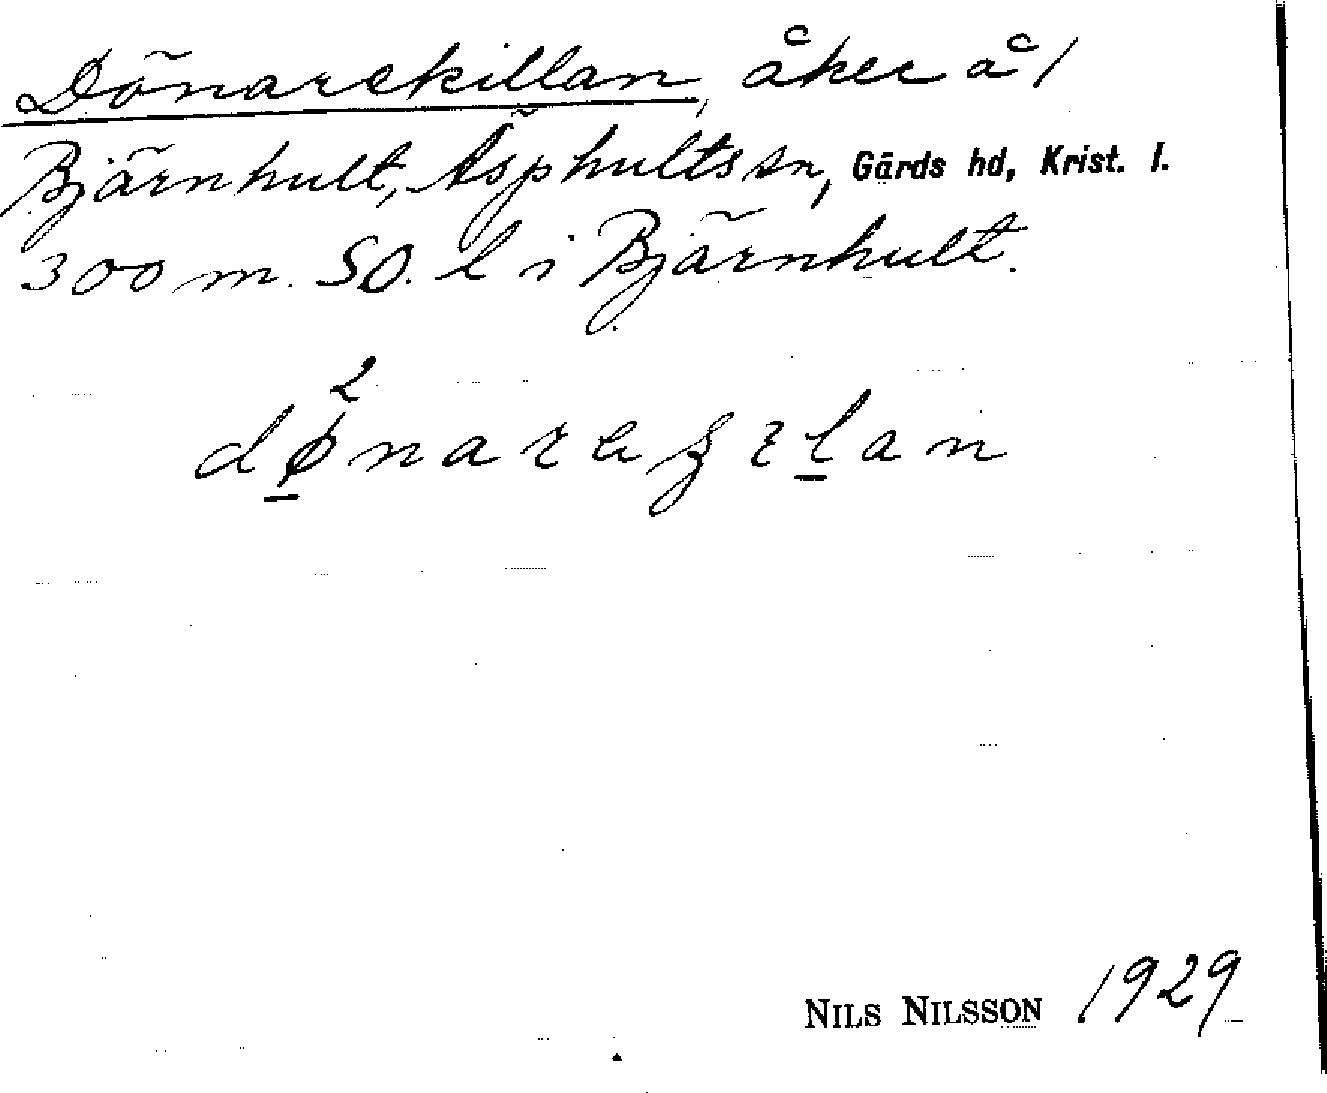 Dönarekillan, åker å 1
Bjärnhult, Äsphults sn, Gärds hd, Krist. l.
300 m. SO. l i Bjärnhult.
2
NILS NILSSON 1929